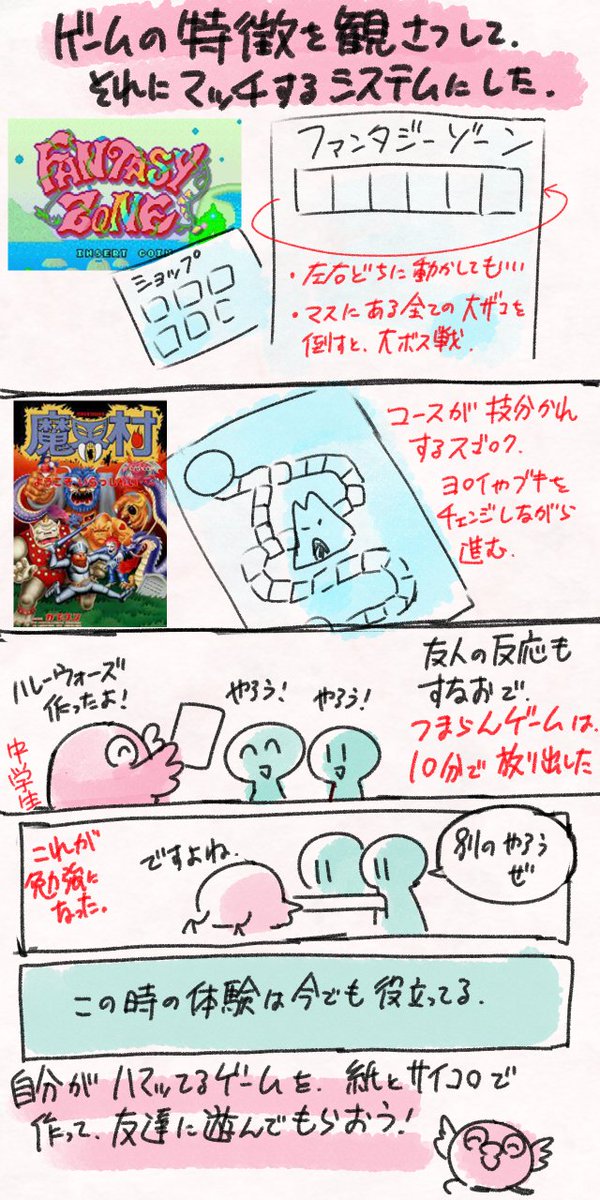 ゲームの特徴を観さつして、
それにマッチするシステムにした。
FANTASY
ZONE
INSERT COIN
ファンタジーゾーン
ショップ
・左右どちに動かしてもいい
・マスにある全ての大ザコを
倒すと、大ボス戦.
魔界村
ようこそ、いらっしゃいませ
コースが枝分かれ
するスゴロク.
ヨロイやブキを
チェンジしながら
進む.
ハレーウォーズ
作ったよ!
中学生
やろう!
やろう!
友人の反応も
すなおで、
つまらんゲームは、
10分で放り出した
これが
勉強に
なった。
ですよね.
別のやろう
ぜ
この時の体験は今でも役立ってる.
自分がハマッてるゲームを、紙とサイコロで
作って、友達に遊んでもらおう!